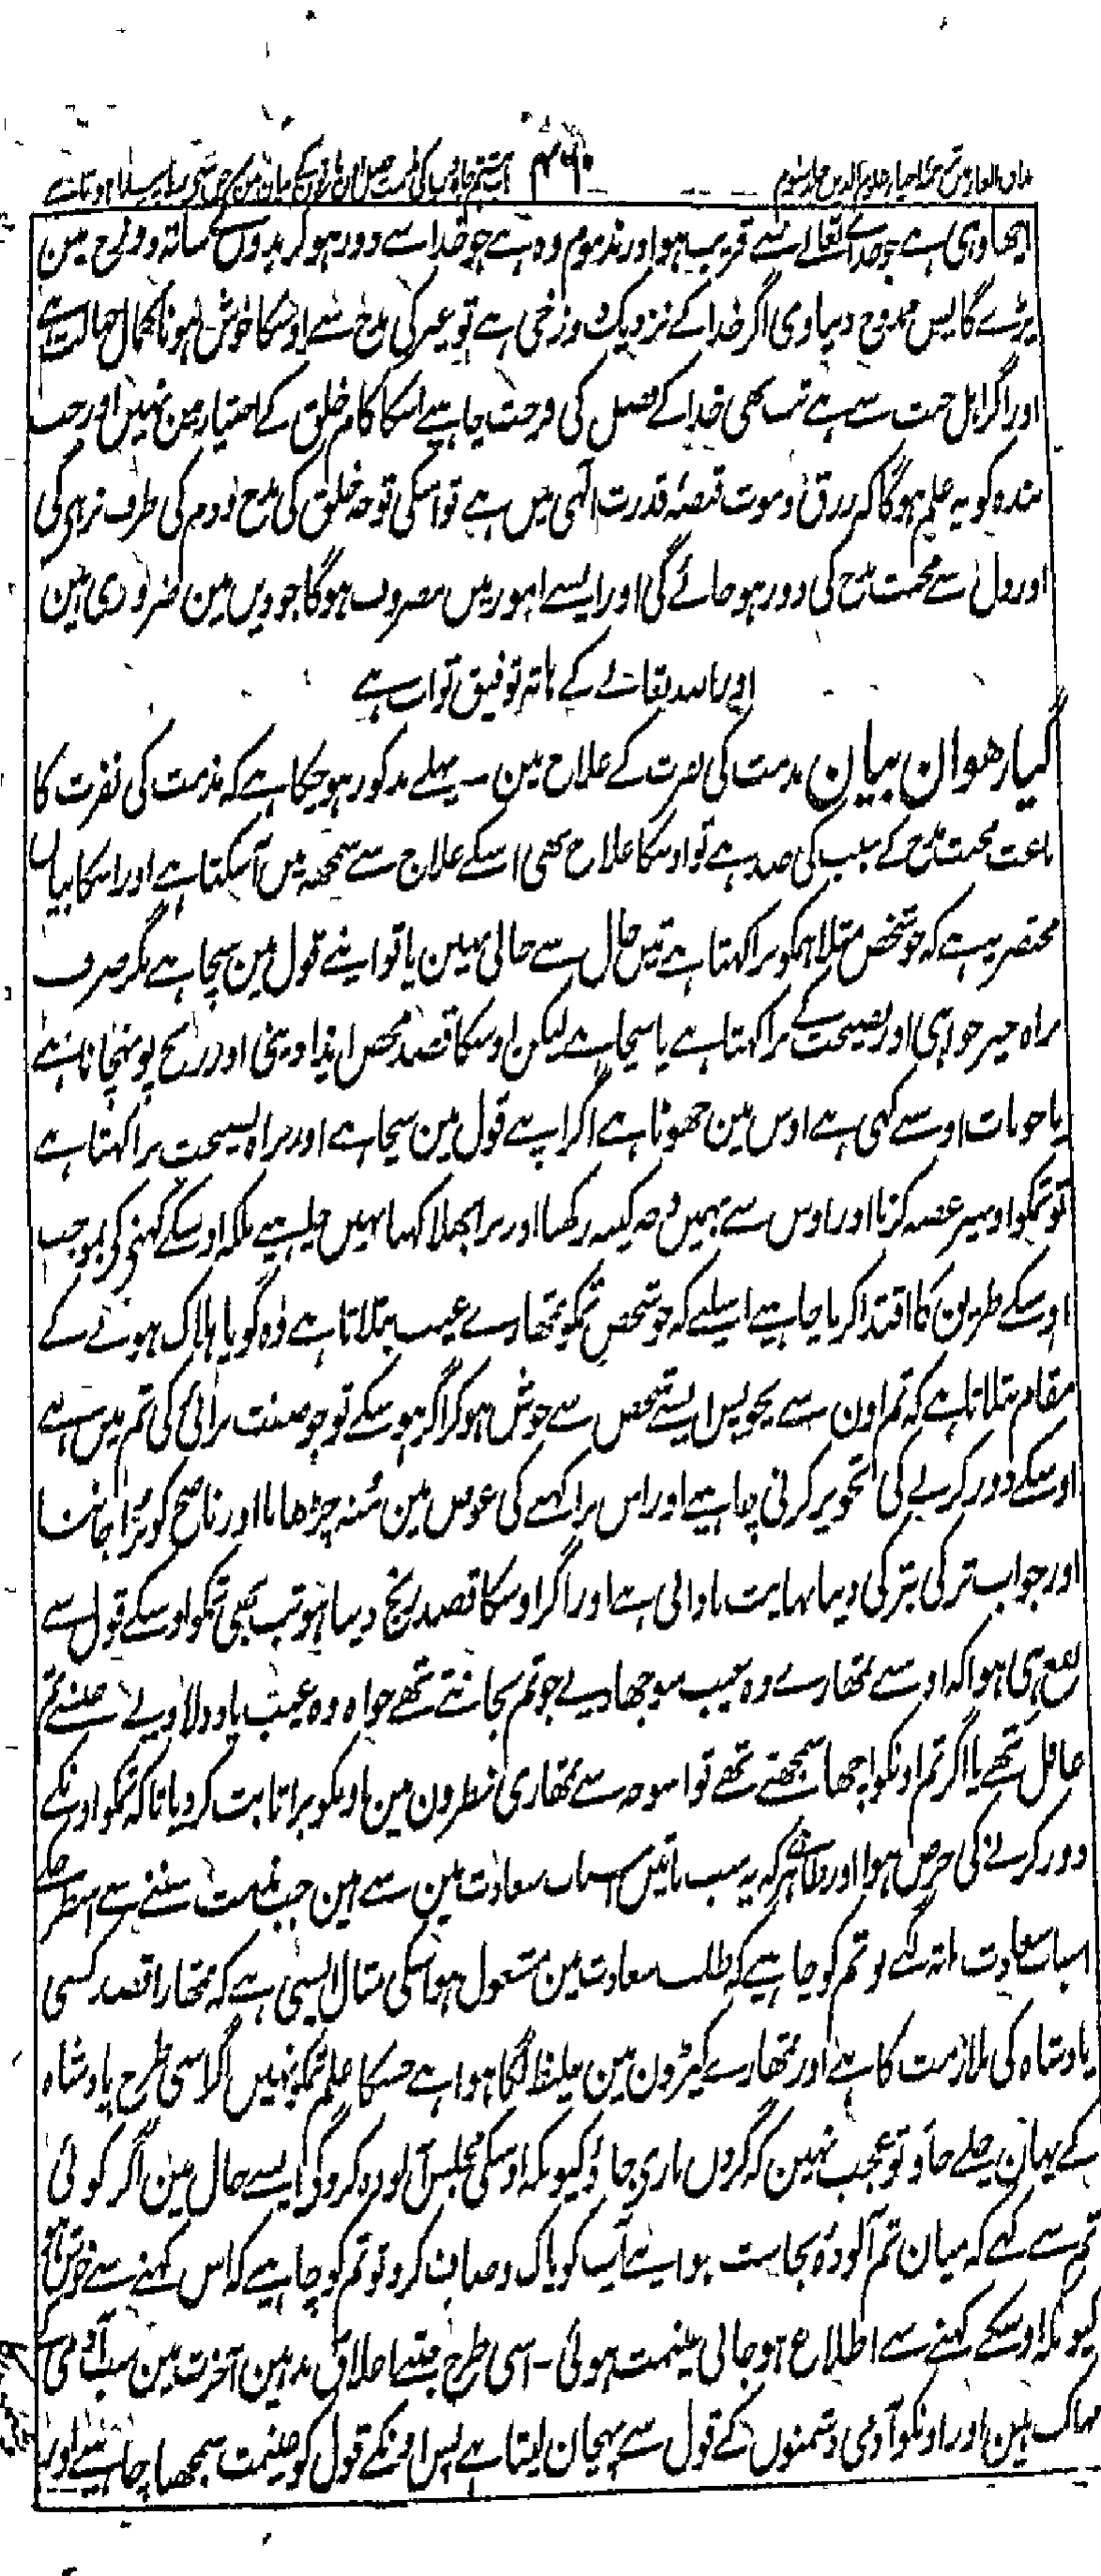 ۴۶۰
اچھا وہی ہے جو خداے تعالے سے قریب ہو اور مذموم وہ ہے جو خدا سے دور ہو کر بدوں کے ساتھ دوزخ مین
پڑے گا پس ممدوح دنیاوی اگر خدا کے نزدیک دوزخی ہے تو غیر کی مدح سے اوسکا خوش ہونا کمال جہالت ہے
اور اگر اہل جنت سے ہے تب بھی خدا کے فضل کی فرحت چاہیے اسکا کام خلق کے اختیار مین نہین اور جب
بندہ کو یہ علم ہوگا کہ رزق و موت قبضۂ قدرت الٰہی میں ہے تو اسکی توجہ خلق کی مدح و ذم کی طرف نرہی گی
اور دل سے محبت مدح کی دور ہو جائے گی اور ایسے امور میں مصروف ہوگا جو دیں مین ضروری ہین
اور اللہ تعالے کے ہاتہ توفیق ثواب ہے
گیارھوان بیان مذمت کی نفرت کے علاج مین ۔ پہلے مذکور ہو چکا ہے کہ مذمت کی نفرت کا
باعث محبت مدح کے سبب کی ضد ہے تو اوسکا علاج بھی اسکے علاج سے سمجھہ میں آسکتا ہے اور اسکا بیان
مختصر یہ ہے کہ جو شخص مثلا تمکو برا کہتا ہے تین حال سے خالی نہین یا تو اپنے قول مین سچا ہے مگر صرف
براہ خیر خواہی اور نصیحت کے برا کہتا ہے یا سچا ہے لیکن اوسکا قصد محض ایذا دینی اور رنج پونہچانا ہے
یا جو بات اوسے کہی ہے اوس مین جھوٹا ہے اگر اپنے قول مین سچا ہے اور براہ نصیحت برا کہتا ہے
تو تمکو اوسپر غصہ کرنا اور اوس سے کینہ رکھنا اور برا بھلا کہنا نہیں چاہیے بلکہ اوسکے کہنے کو بموجب
اوسکے طریق کا اقتدا کرنا چاہیے اسلیے کہ جو شخص تمکو تمھارے عیب بتلاتا ہے وہ گویا ہلاک ہونے کے
مقام بتلاتا ہے کہ تم اون سے بچو پس ایسے شخص سے خوش ہو کر اگر ہو سکے تو جو صفت برائی کی تم میں ہے
اوسکے دور کرنے کی تجویز کرنی چاہیے اور اس برا کہنے کی عوض مین مُنہ چڑھانا اور ناصح کو بُرا جاننا
اور جواب ترکی بترکی دینا نہایت نادانی ہے اور اگر اوسکا قصد رنج دینا ہو تب بھی تمکو اوسکے قول سے
نفع ہی ہوا کہ اوسے تمھارے وہ عیب سوجھا دیے جو تم نجانتے تھے خواہ وہ عیب یاد دلادیے جنسے تم
غافل تھے یا اگر تم اونکو اچھا سمجھتے تھے تو اسوجہ سے تمھاری نظرون مین اونکو برا ثابت کر دیا تاکہ تمکو اونکے
دور کرنے کی حرص ہو اور ظاہر ہے کہ یہ سب باتیں اسباب سعادت مین سے ہین جب مذمت سننے سے اسطرح
اسباب سعادت ہاتہ لگے تو تم کو چاہیے کہ طلب سعادت مین مشغول ہو اسکی مثال ایسی ہے کہ تمھارا قصد کسی
بادشاہ کی ملازمت کا ہے اور تمھارے کپڑون مین غلیظ لگا ہوا ہے جسکا علم تمکو نہیں اگر اسی طرح بادشاہ
کے یہان چلے جاؤ تو عجب نہین کہ گردن ماری جاؤ کیونکہ اوسکی مجلس آلودہ کروگے ایسے حال مین اگر کوئی
تم سے کہے کہ میان تم آلودۂ نجاست ہو اپنے آپ کو پاک و صاف کرو تو تم کو چاہیے کہ اس کہنے سے خوش ہو
کیونکہ اوسکے کہنے سے اطلاع ہو جانی غنیمت ہوئی ۔ اسی طرح جتنے اخلاق بد ہین آخرت مین سب آدمی کے
مہلک ہین اور اونکو آدمی دشمنوں کے قول سے پہچان لیتا ہے پس اونکے قول کو غنیمت سمجھنا چاہیے اور